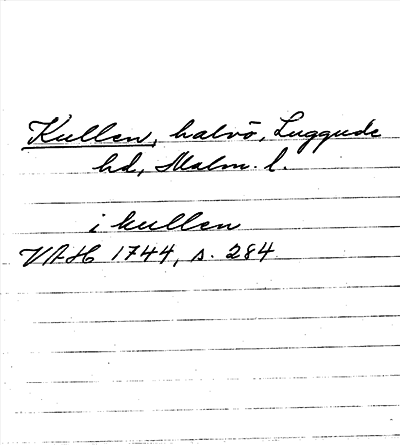 Kullen, halvö, Luggude
hd, Malm. l.
i kullen
VAH 1744, s. 284